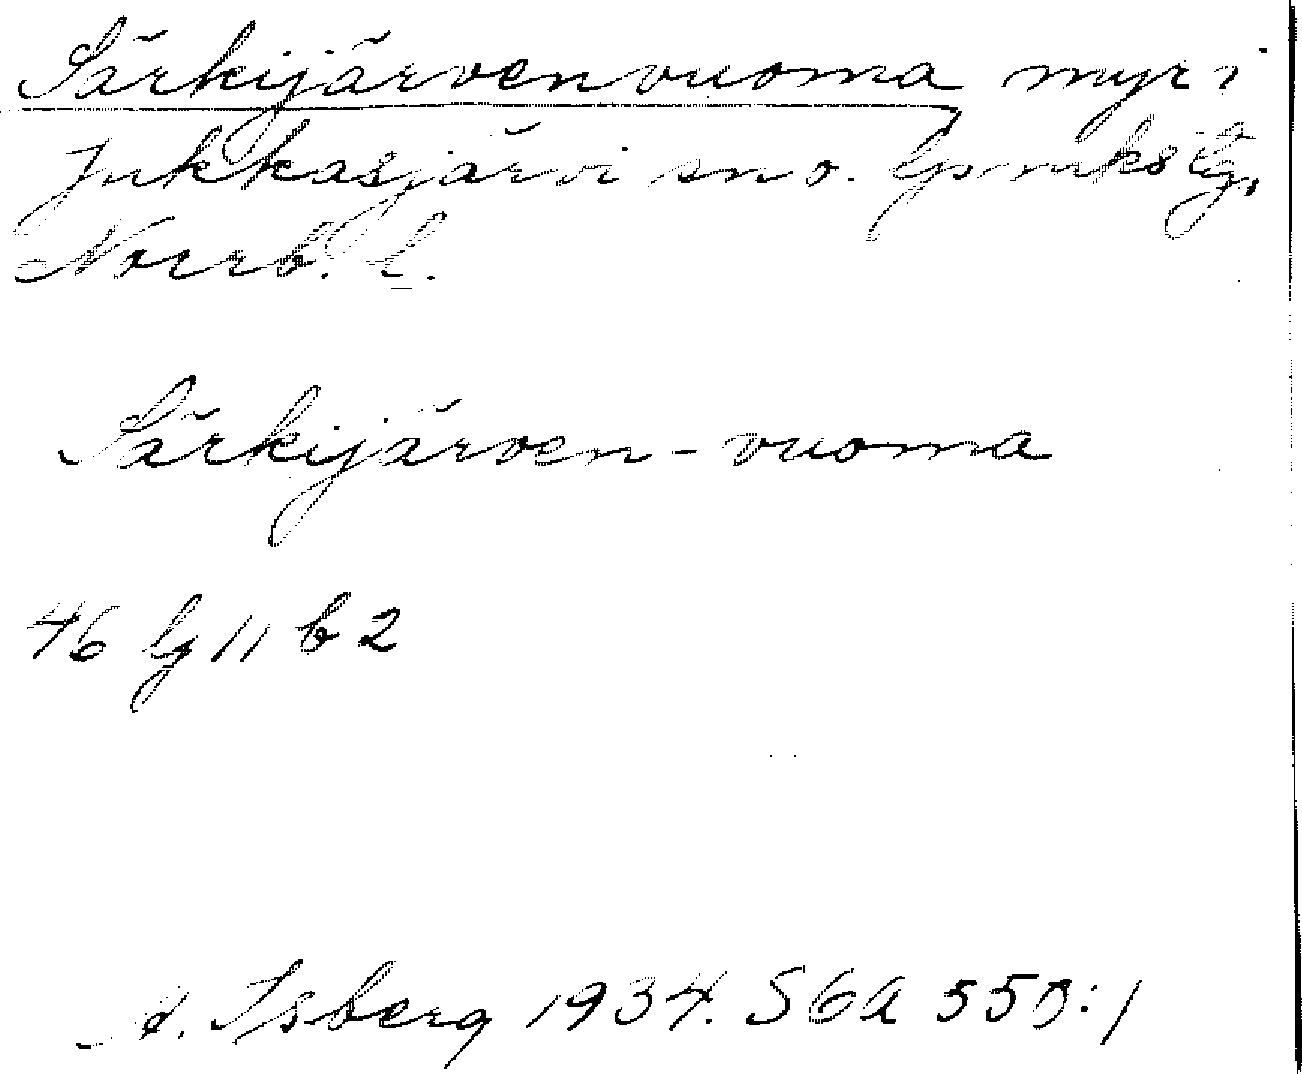 Särkijärvenvuoma myr i
Jukkasjärvi sn o. lpmks tg,
Norrb. l.
Särkijärven-vuoma
46 lg 11 b 2
A. Isberg 1934. S6A 55B:1